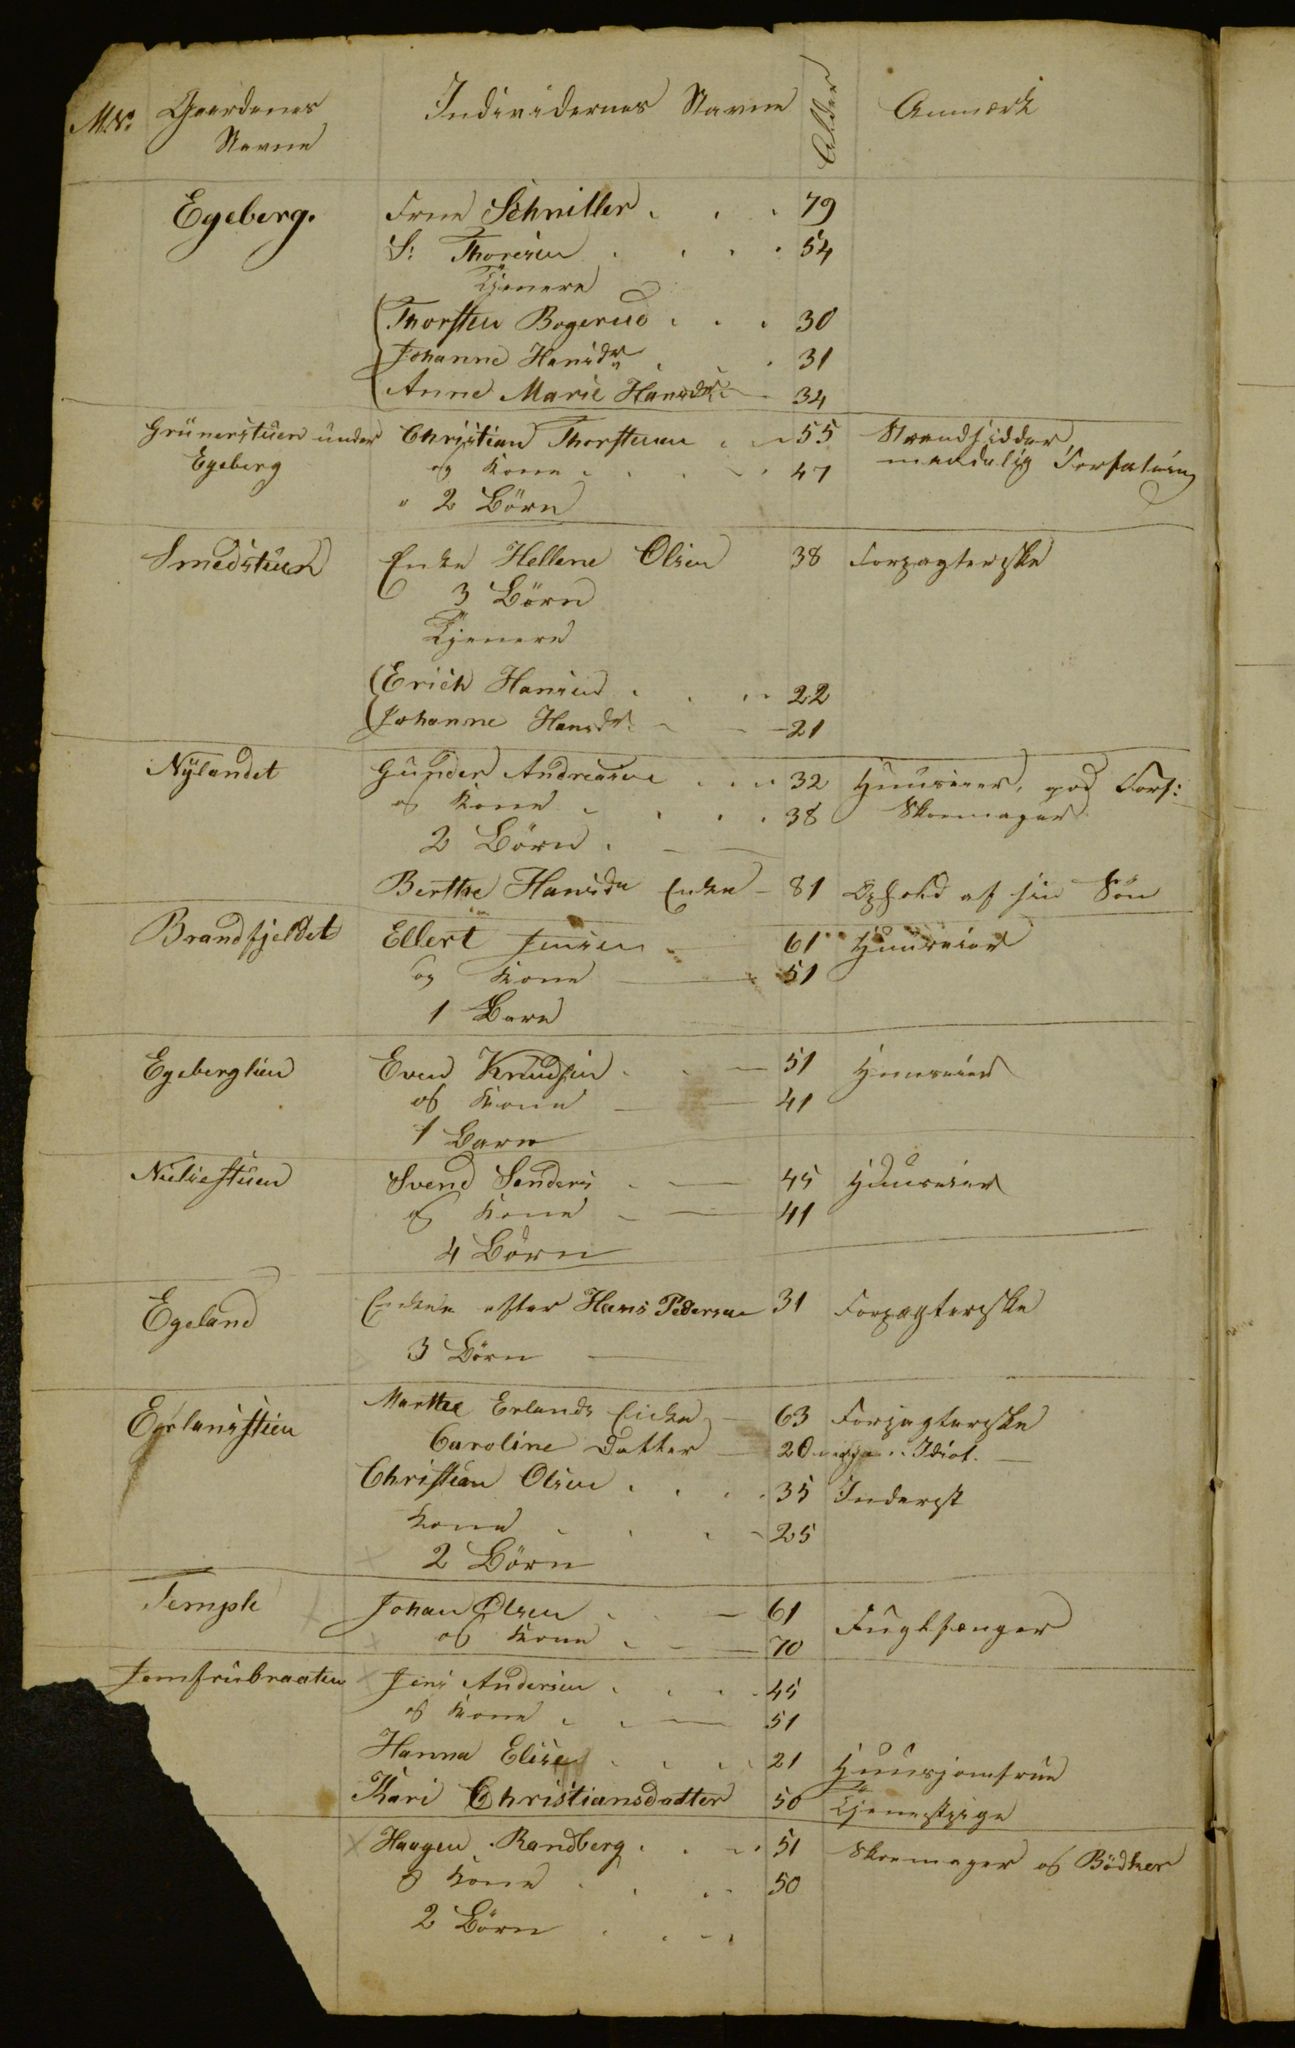 M.N. Gaardenes Navne Individernes Navne Alder Anmærk
Egeberg. Frue Schnitler . . . 79
S: Thoresen . . . . 54
Tjenere
Thorsten Bogerud . . . 30
Johanne Hansdr . . 31
Anne Marie Hansdr. — 34
Grünerstuen under Christian Thorstensen . . 55 Strandsidder
Egeberg og Kone . . . 47 maadelig Forfatning
" 2 Börn
Smedstuen Enke Hellene Olsen 38 Forpagterske
3 Börn
Tjenere
Erich Hansen . . . 22
Johanne Hansdr. — 21
Nÿlandet Gunder Andreasen . . . 32 Huuseier, god Forf:
og Kone . . . . 38 Skomager
2 Börn . — —
Berthe Hansdr Enke — 81 Ophold af sin Sön
Brandfjeldet Ellert Jensen — 61 Huuseier
og Kone — 51
1 Barn
Egeberglien Even Knudsen . . — 51 Huuseier
og Kone — — 41
1 Barn
Nielsestuen Svend Senders . — 45 Huuseier
og Kone — — 41
4 Börn
Egeland Enken efter Hans Pedersen 31 Forpagterske
3 Börn —
Marthe Erlands Enke — 63 Forpagterske
Caroline Datter — 20 Idiot. —
Christian Olsen . . . 35 Inderst
Kone . . . — 25
2 Börn
Temple Johan Olsen . . — 61 Fuglfænger
og Kone . — — 70
Jomfrubraaten Jens Andersen . . . . 45
og Kone . . — 51
Hanna Elise . . . 21 Huusjomfrue
Kari Christiansdatter 50 Tjenestpige
Haagen Randberg . . . 51 Skomager og Bödker
og Kone . . . . 50
2 Börn . . . .